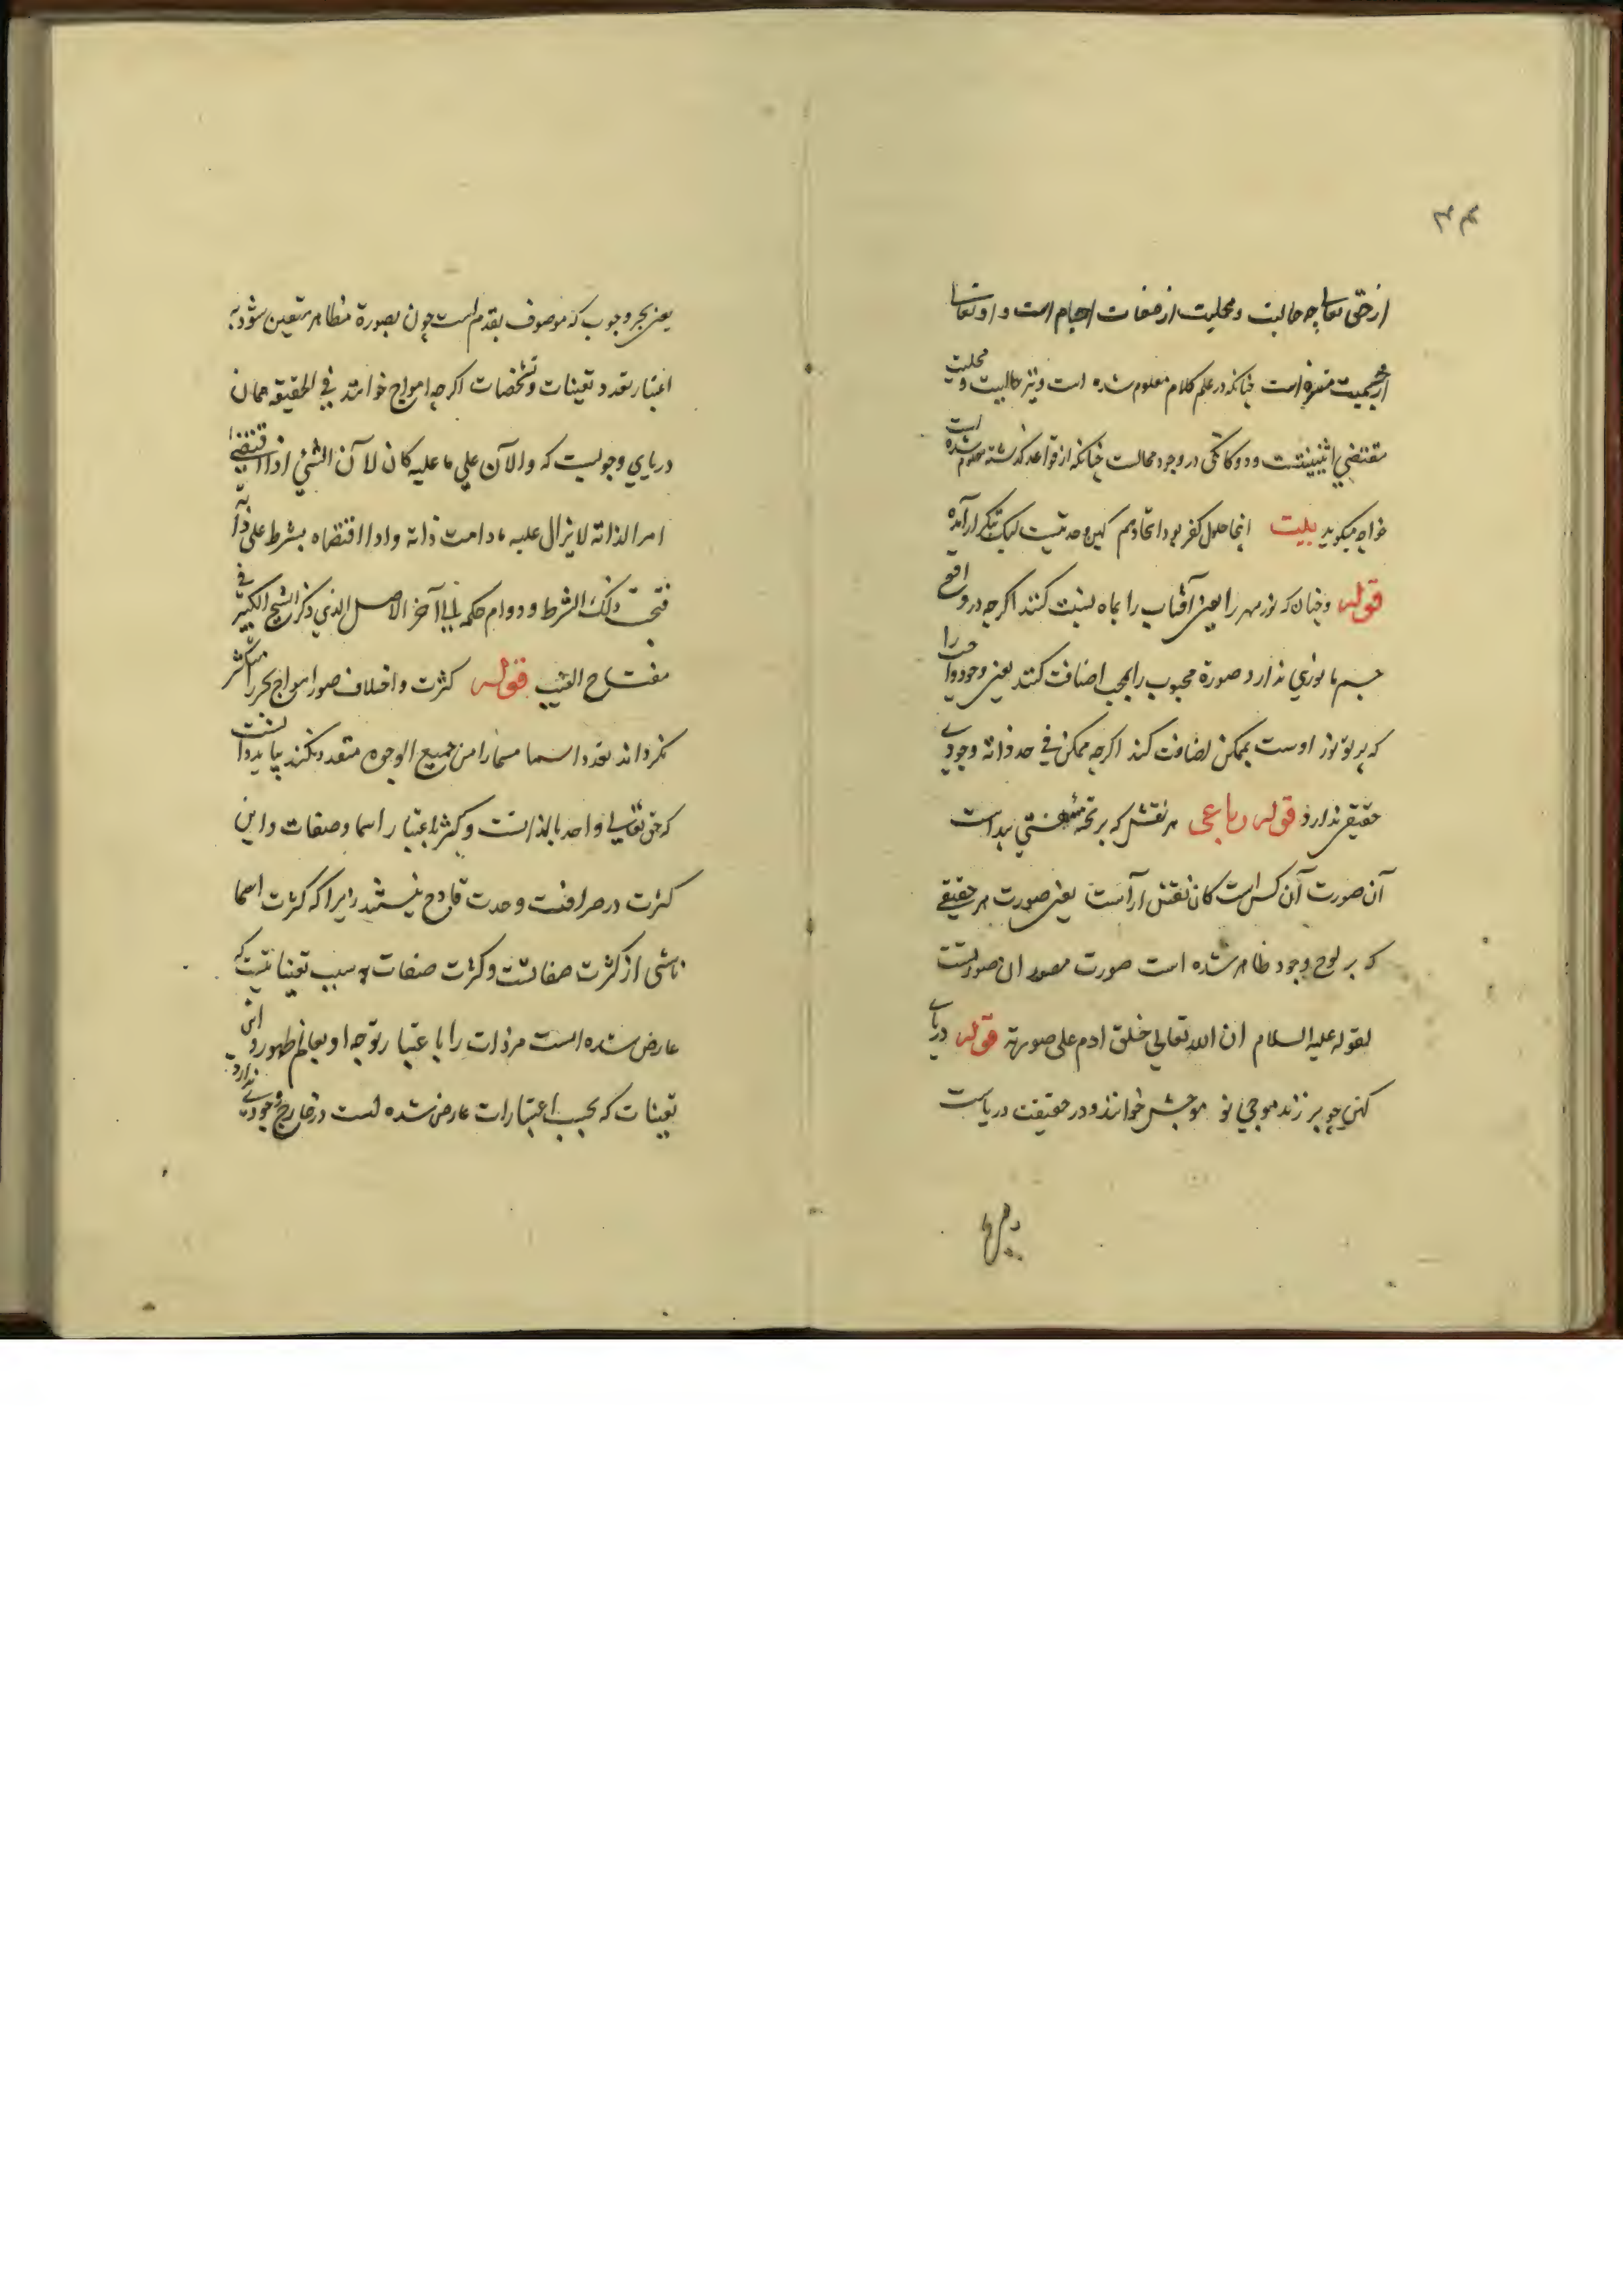 ۳۴
از حق تعالی چه حالیت و محلیت از صفات اجسام است و او تعالی
از جسمیت منزه است چنانکه در علم کلام معلوم شده است و نیز حالیت و محلیت
مقتضی اثنینیتست و دوکانکی در وجود محالست چنانکه از قواعد کذشته معلوم شده است
خواجه میکوید بیت اینجا حلول کفر بود اتحاد هم کین وحدتیست لیک بتکرار آمده
قوله و چنان که نور مهر را یعنی آفتاب را بماه نسبت کنند اکرچه در واقع
جسم ماه نوری ندارد صورة محبوب را بمحب اضافت کنند یعنی وجود واجب را
که پرتو نور اوست بممکن اضافت کند اکرچه ممکن فی حد ذاته وجودی
حقیقی ندارد قوله رباعی هر نقش که بر تخته هستی پیداست
آن صورت آن کس است کان نقش آراست یعنی صورت هر حقیقی
که بر لوح وجود ظاهر شده است صورت مصور ان صورتست
لقوله علیه السلام ان الله تعالی خلق ادم علی صورته قوله دریای
کهن چو بر زند موجی نو موجش خوانند و در حقیقت دریاست
یعنی بحر وجوب که موصوف بقدم است چون بصورة مظاهر متعین شود به
اعتبار تعدد تعینات و تشخصات اکرچه امواج خوانند فی الحقیقه همان
دریای وجوبست که والآن علی ما علیه کان لآن الشئی اذا اقتضی
امرا لذاته لا یزال علیه مادامت ذاته واذا اقتضاه بشرط علی ذاته
فتحت ذلک الشرط و دوام حکمه الی آخر الاصل الذی ذکر الشیخ الکبیر فی
مفتاح الغیب قوله کثرت و اختلاف صور امواج بحر را متکثر
نکرداند تعدد اسما مسما را من جمیع الوجوه متعدد نکند بباید دانست
که حق تعالی واحد بالذاتست و کثیر باعتبار اسما و صفات و این
کثرت در صرافت وحدت قادح نیستند زیرا که کثرت اسما
ناشی از کثرت صفاتست و کثرت صفات بسبب تعیناتیست که
عارض شده است مر ذات را باعتبار توجه او بعالم ظهور و این
تعینات که بحسب اعتبارات عارض شده است در خارج وجودی ندارد